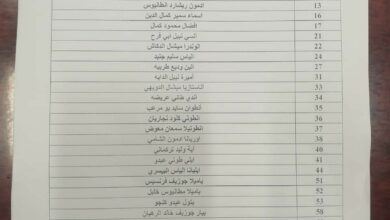 ادمون ريشارد انطانيوس 13
اسماء سمير كمال الدين 16
افضال محمود كمال 17
السي نبيل ابي فرح 21
الوندرا ميشال الدكاش 22
الياس سليم جنيد 24
الين وديع طربيه 27
اميرة نبيل الدايه 31
ميشال الدويهي 33
اندي طاني عريضه 34
انطوان سايد بو مرعب 35
انطوني كلود نجاريان 36
انطونيلا سمعان معوض 37
اوريانا ادمون الشامي 38
آية وليد تركماني 40
ايلي طوني عبدو 41
ايليانا الياس البيسري 44
باميلا جوزيف فرنسيس 51
باميلا مطانيوس خليل 52
بتول عبدو كنجو 53
بيار جوزيف خالد الرعيان 58